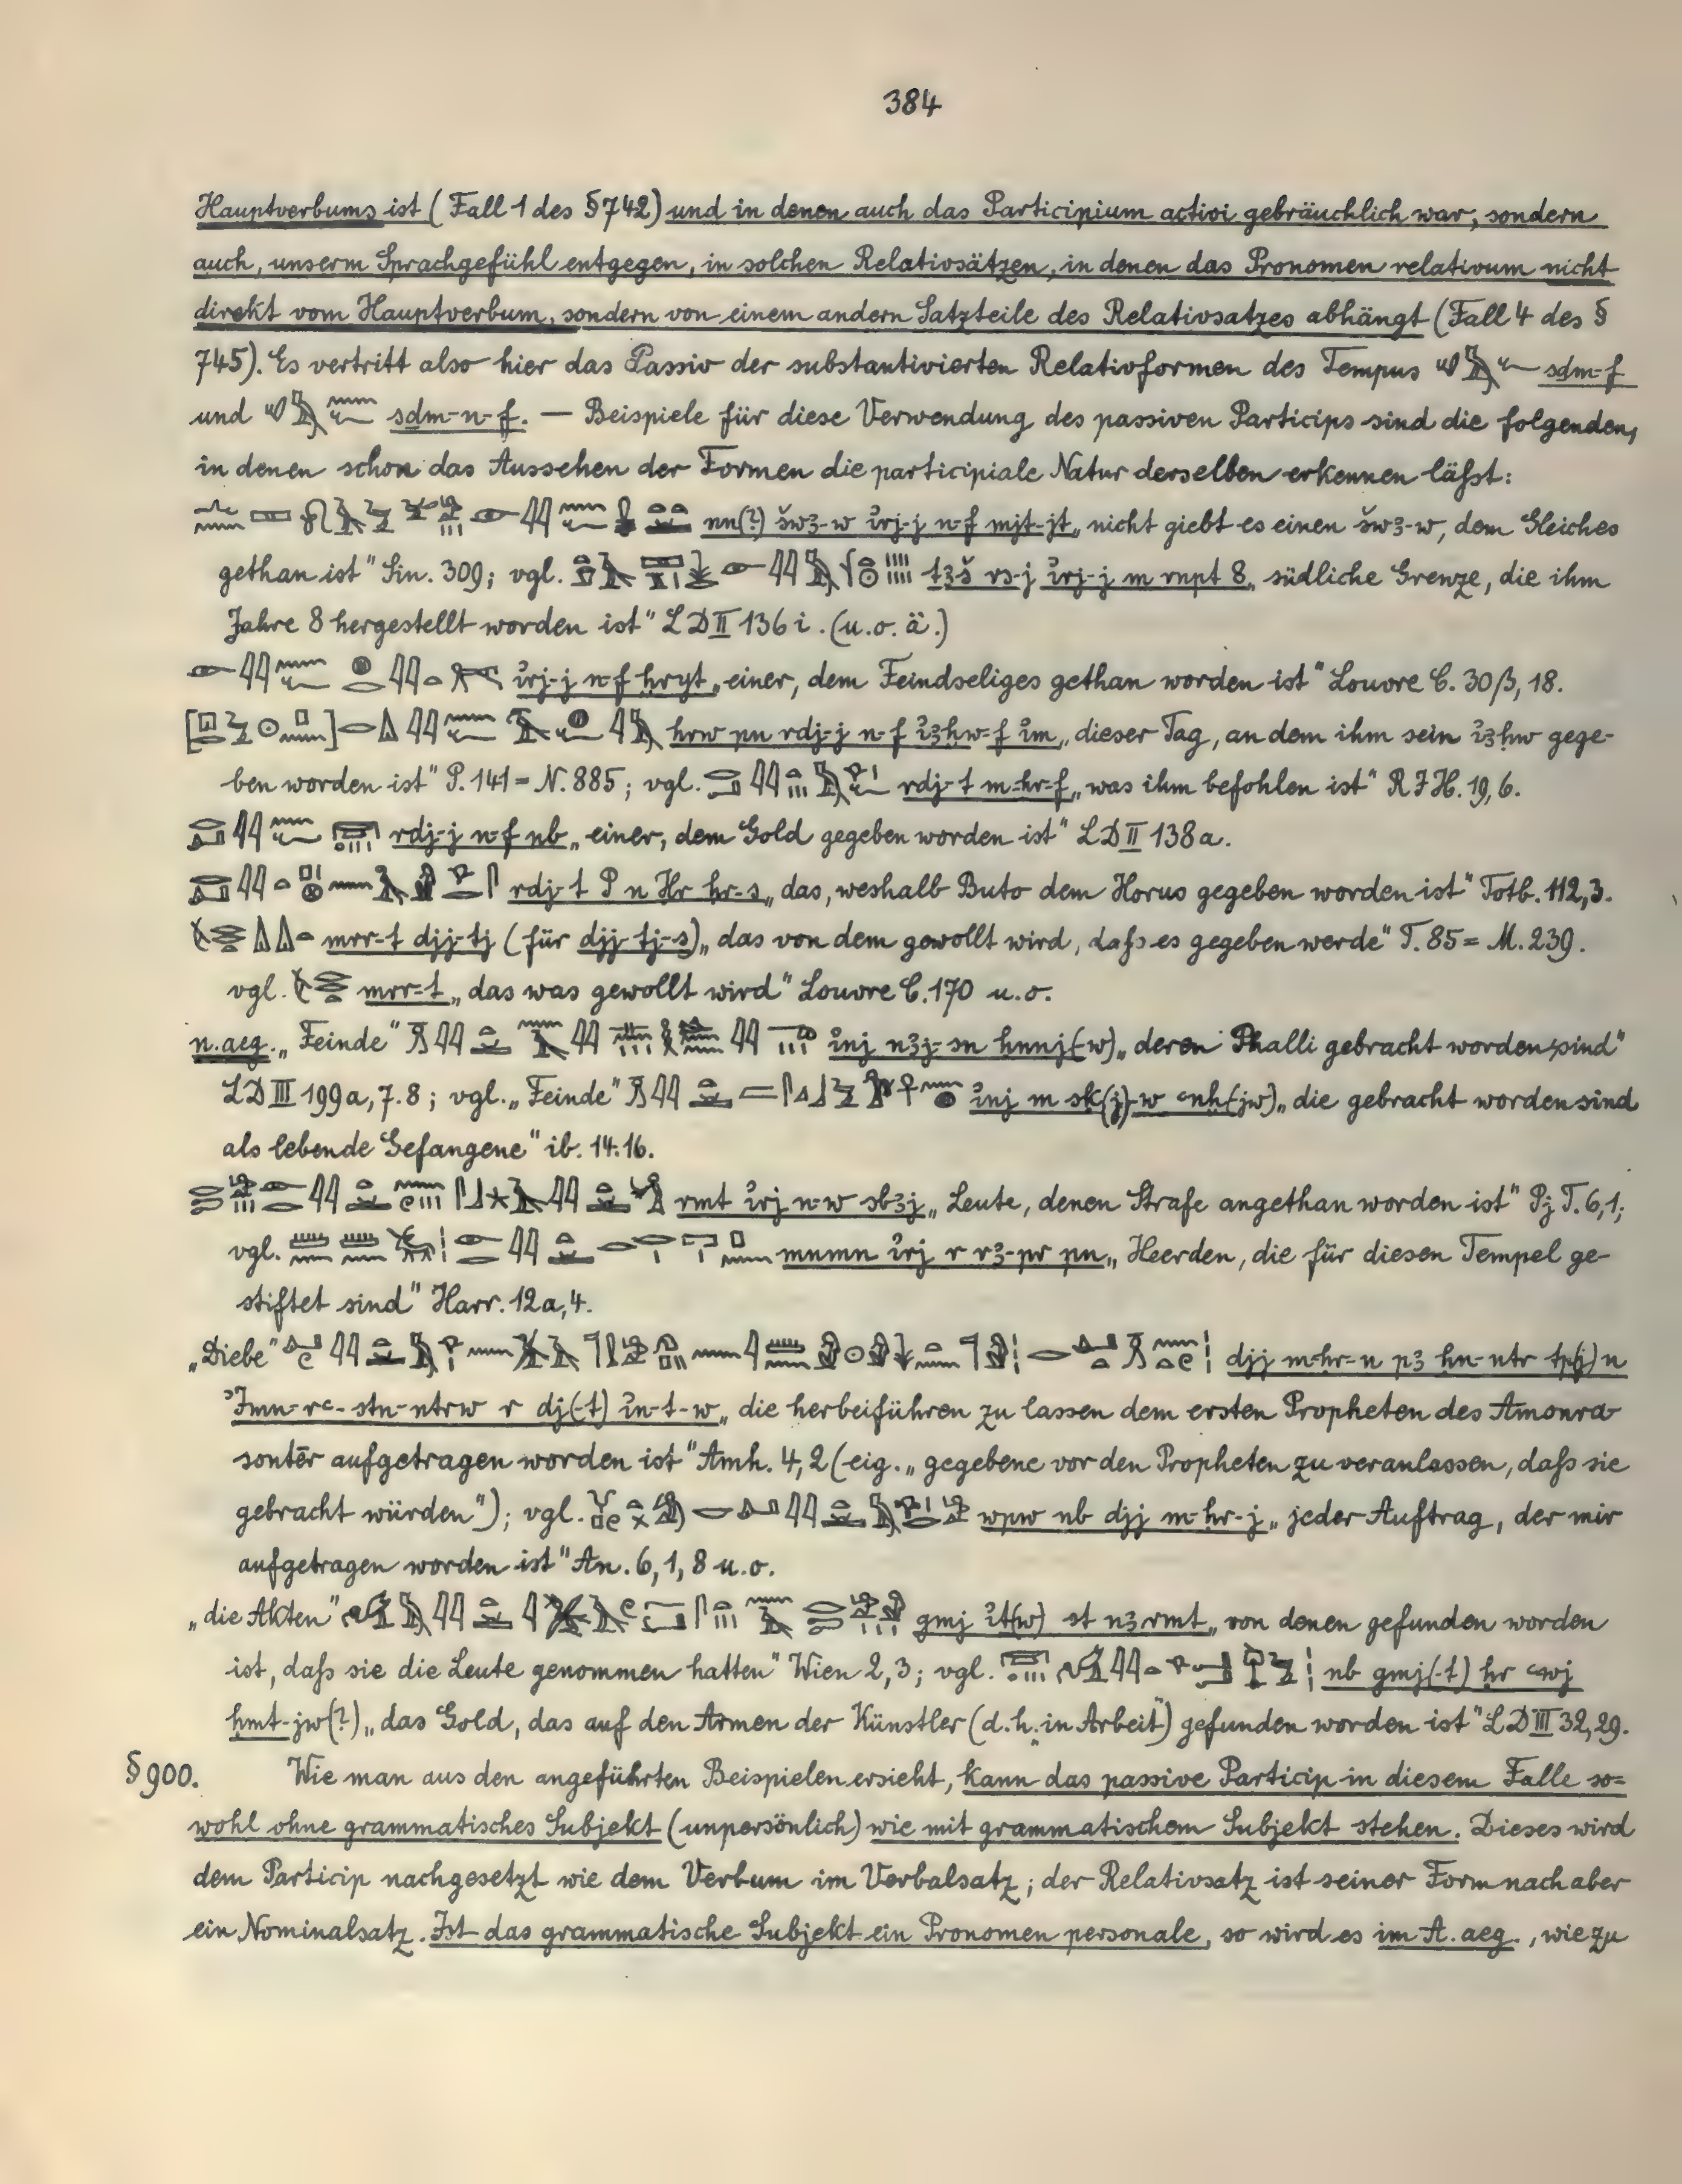 384
Hauptverbums ist (Fall 1 des § 742) und in denen auch das Participium activi gebräuchlich war, sondern
auch, unserm Sprachgefühl entgegen, in solchen Relativsätzen, in denen das Pronomen relativum nicht
direkt vom Hauptverbum, sondern von einem andern Satzteile des Relativsatzes abhängt (Fall 4 des §
745). Es vertritt also hier das Passiv der substantivierten Relativformen des Tempus sdm-f
und sdm-n-f. — Beispiele für diese Verwendung des passiven Particips sind die folgenden,
in denen schon das Aussehen der Formen die participiale Natur derselben erkennen läßt:
nn(?) šwꜣ-w ı͗rj-j n-f mjt-jt „nicht giebt es einen šwꜣ-w, dem Gleiches
gethan ist" Sin. 309; vgl. tꜣš rs-j ı͗rj-j m rnpt 8 „südliche Grenze, die ihm
Jahre 8 hergestellt worden ist" LD II 136 i. (u. o. ä.)
ı͗rj-j n-f ḫryt „einer, dem Feindseliges gethan worden ist" Louvre C. 30β, 18.
hrw pn rdj-j n-f ı͗ꜣḫw-f ı͗m „dieser Tag, an dem ihm sein ı͗ꜣḫw gege-
ben worden ist" P. 141 = N. 885; vgl. rdj-t m-ḥr-f „was ihm befohlen ist" RIH. 19, 6.
rdj-j n-f nb „einer, dem Gold gegeben worden ist" LD II 138a.
rdj-t P n Ḥr ḥr-s „das, weshalb Buto dem Horus gegeben worden ist" Totb. 112, 3.
mrr-t djj-tj (für djj-tj-s) „das von dem gewollt wird, daß es gegeben werde" T. 85 = M. 239.
vgl. mrr-t „das was gewollt wird" Louvre C. 170 u. o.
n. aeg. „Feinde" ı͗nj nꜣj-sn ḥnnj(w) „deren Phalli gebracht worden sind"
LD III 199a, 7. 8; vgl. „Feinde" ı͗nj m sḳ(j)-w ꜥnḫ(jw) „die gebracht worden sind
als lebende Gefangene" ib. 14. 16.
rmt ı͗rj n-w sbꜣj „Leute, denen Strafe angethan worden ist" Pj T. 6, 1;
vgl. mnmn ı͗rj r rꜣ-pr pn „Heerden, die für diesen Tempel ge-
stiftet sind" Harr. 12a, 4.
„Diebe" djj m-ḥr-n pꜣ ḥn-ntr tp(j) n
ʾImn-rꜥ-stn-ntrw r dj(-t) ı͗n-t-w „die herbeiführen zu lassen dem ersten Propheten des Amonra
sonter aufgetragen worden ist" Amh. 4, 2 (eig. „gegebene vor den Propheten zu veranlassen, daß sie
gebracht würden"); vgl. wpw nb djj m-ḥr-j „jeder Auftrag, der mir
aufgetragen worden ist" An. 6, 1, 8 u. o.
„die Akten" gmj ı͗t(w) st nꜣ rmt „von denen gefunden worden
ist, daß sie die Leute genommen hatten" Wien 2, 3; vgl. nb gmj(-t) ḥr ꜥwj
ḥmt-jw(?) „das Gold, das auf den Armen der Künstler (d. h. in Arbeit) gefunden worden ist" LD III 32, 29.
§ 900. Wie man aus den angeführten Beispielen ersieht, kann das passive Particip in diesem Falle so-
wohl ohne grammatisches Subjekt (unpersönlich) wie mit grammatischem Subjekt stehen. Dieses wird
dem Particip nachgesetzt wie dem Verbum im Verbalsatz; der Relativsatz ist seiner Form nach aber
ein Nominalsatz. Ist das grammatische Subjekt ein Pronomen personale, so wird es im A. aeg., wie zu